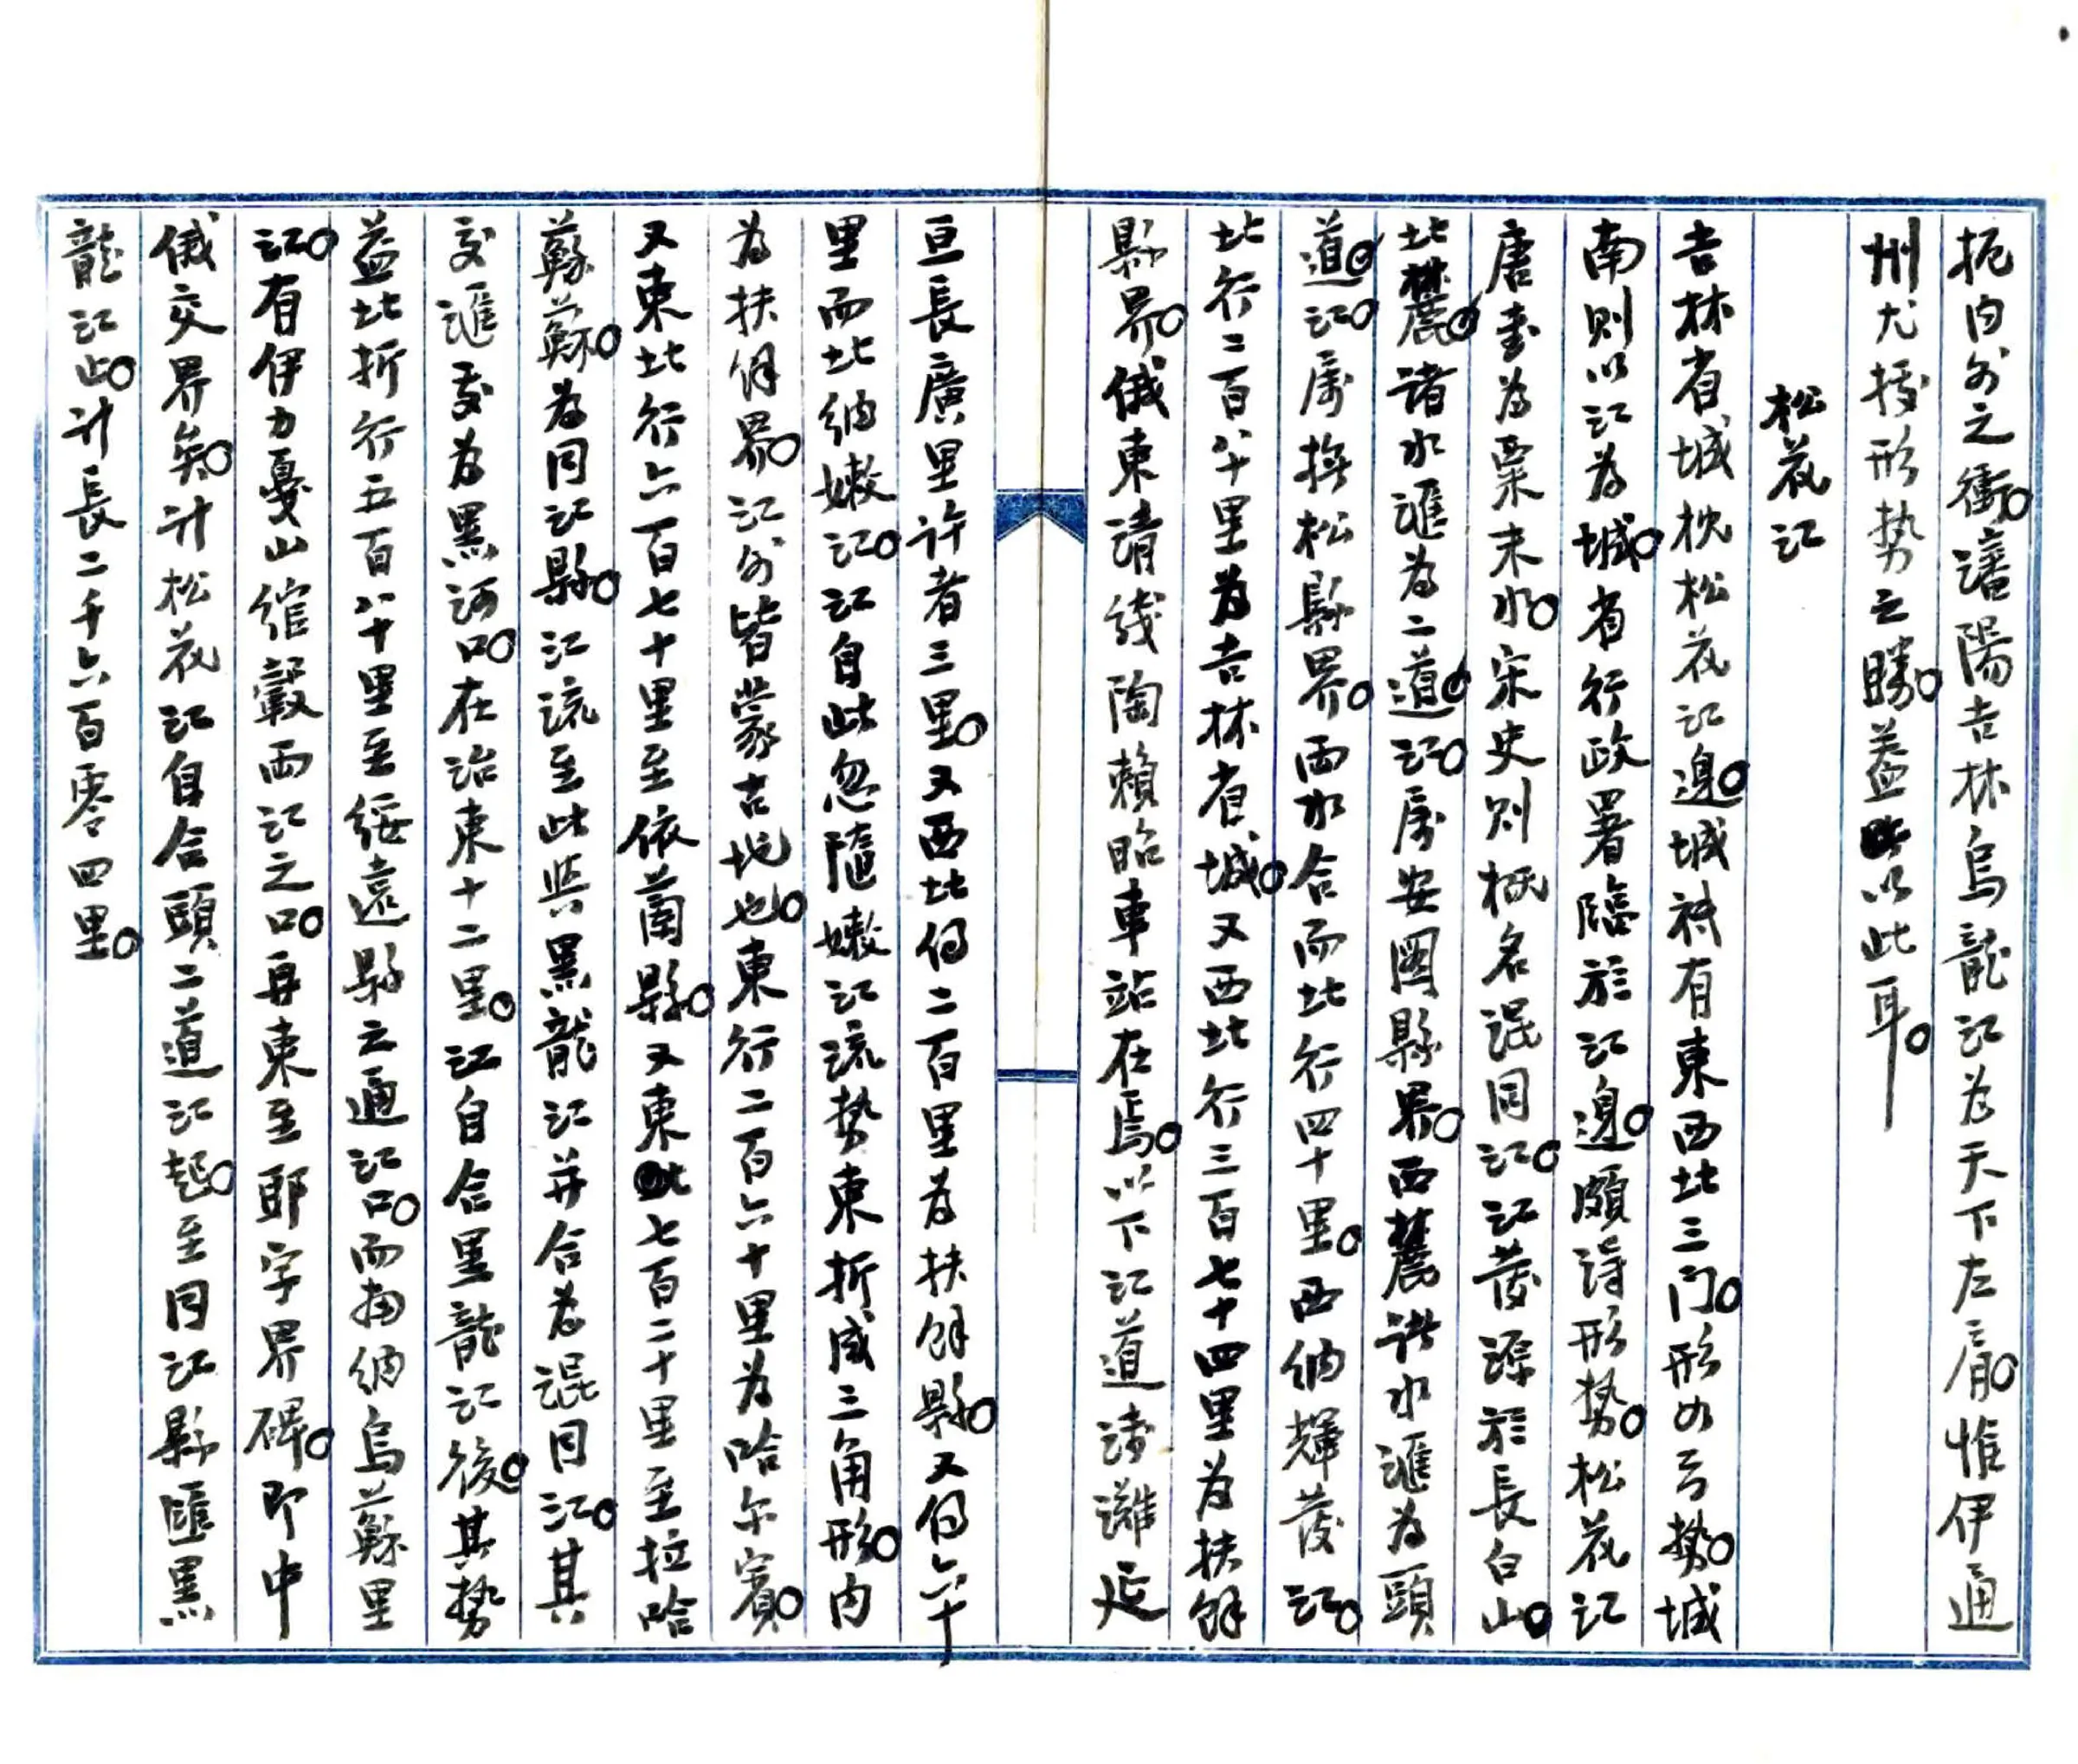 扼內外之衝。瀋陽吉林烏龍江為天下左肩。惟伊通
州尤擅形勢之勝。蓋以此耳。
松花江
吉林省城枕松花江邊。城祇有東西北三门。形如弓勢。城
南則以江為城。省行政署臨於江邊。頗詩形勢。松花江
唐書為粟末水。宋史則概名混同江。江發源於長白山。
北麓。諸水滙為二道江。屬安圖縣界。西麓諸水滙為頭
道江。屬撫松縣界。兩水合而北行四十里。西納輝發江。
北行二百八十里為吉林省城。又西北行三百七十四里為扶餘
縣界。俄東清綫陶賴昭車站在焉。以下江道諸灘延
亘長廣里許者三里。又西北得二百里為扶餘縣。又得六十
里而北納嫩江。江自此忽隨嫩江流勢東折成三角形。內
為扶餘界。江外皆蒙古地也。東行二百六十里為哈尔賓。
又東北行六百七十里至依蘭縣。又東北七百二十里至拉哈
蘇蘇。為同江縣。江流至此與黑龍江并合為混同江。其
交滙處為黑河口。在治東十二里。江自合黑龍江後。其勢
益北折行五百八十里至綏遠縣之通江口。而南納烏蘇里
江。有伊力戛山綰轂兩江之口。再東至耶字界碑。即中
俄交界矣。计松花江自合頭二道江起。至同江縣匯黑
龍江止。计長二千六百零四里。